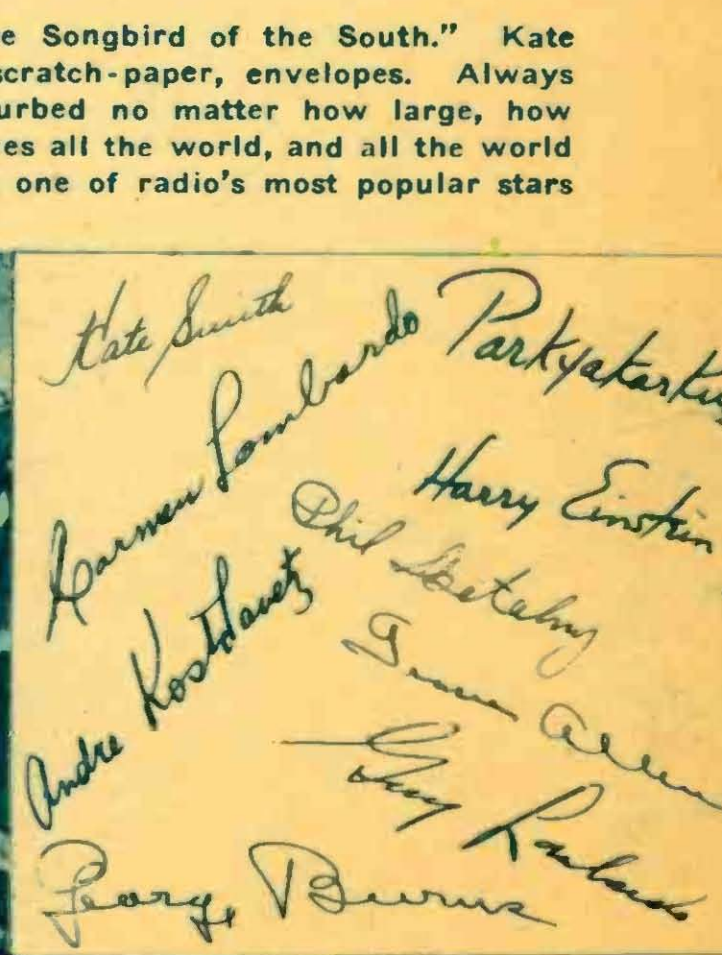 e Songbird of the South." Kate
scratch-paper, envelopes. Always
urbed no matter how large, how
es all the world, and all the world
one of radio's most popular stars
Kate Smith
Parkyakarkus
Carmen Lombardo
Harry Einstein
Phil Spitalny
Andre Kostelanetz
Gracie Allen
Guy Lombardo
George Burns